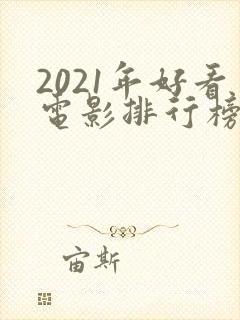 2021年好看
电影排行榜
宙斯